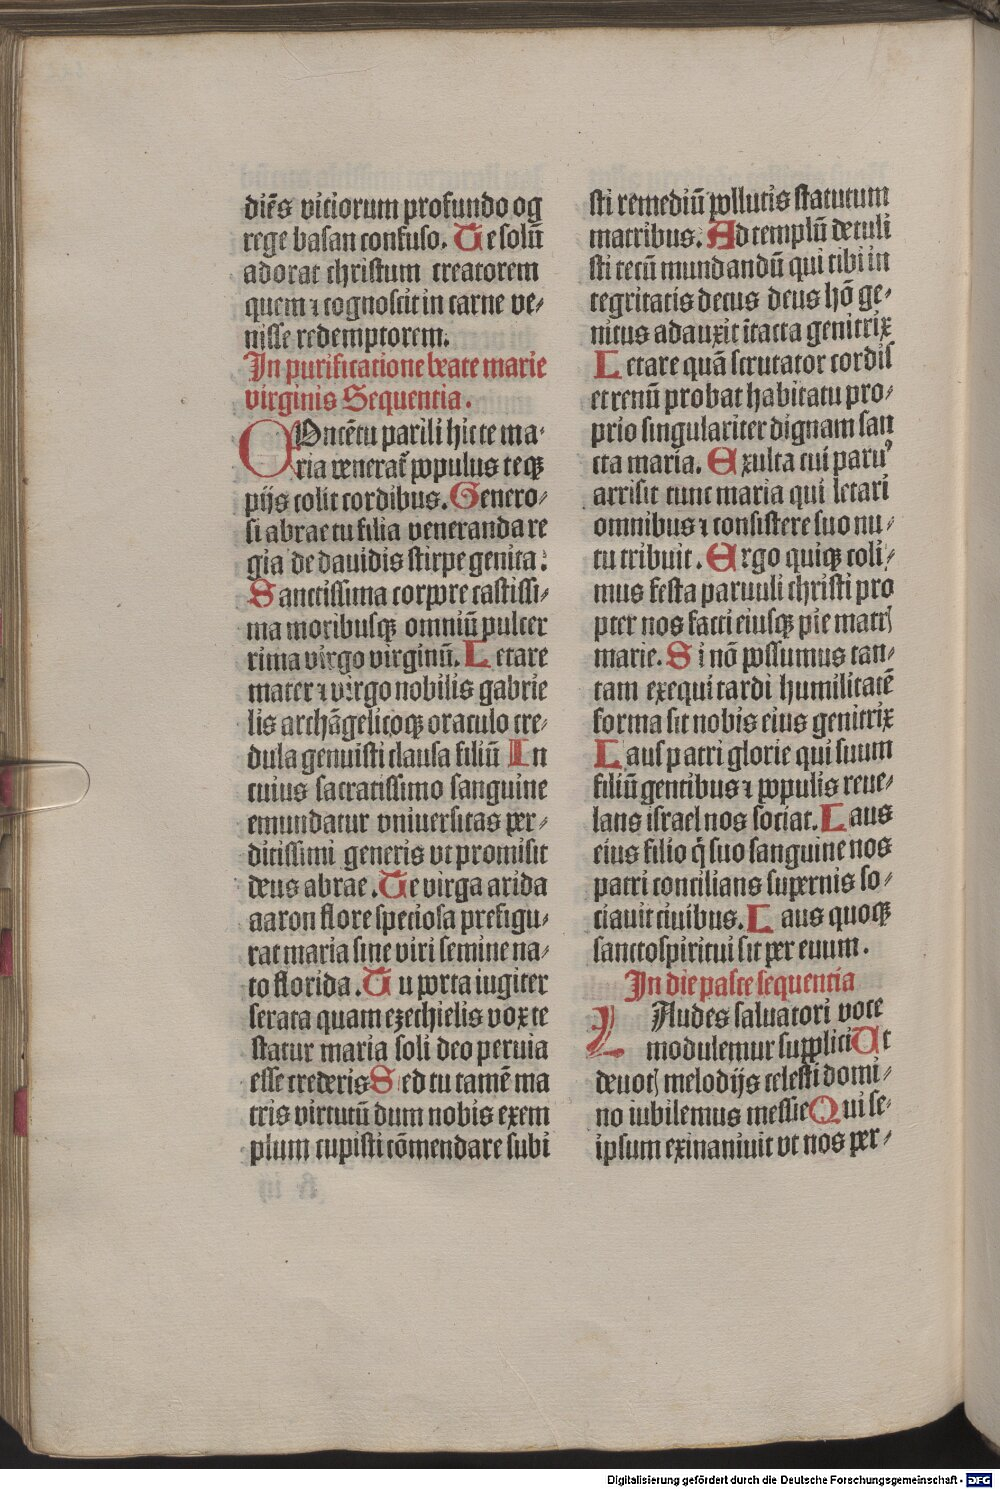 diēs viciorum profundo og
rege basan confuso. Te solū
adorat christum creatorem
quem ⁊ cognoscit in carne ve⸗
nisse redemptorem.
In purificatione beate marie
virginis Sequentia.
COncētu parili hic te ma⸗
ria venerat᷑ populus teqꝫ
pijs colit cordibus. Genero⸗
si abrae tu filia veneranda re
gia de dauidis stirpe genita:
Sanctissima corpore castissi⸗
ma moribusqꝫ omniū pulcer
rima virgo virginū. Letare
mater ⁊ virgo nobilis gabrie
lis archāgelicoqꝫ oraculo cre⸗
dula genuisti clausa filiū In
cuius sacratissimo sanguine
emundatur vniuersitas per⸗
ditissimi generis vt promisit
deus abrae. Te virga arida
aaron flore speciosa prefigu⸗
rat maria sine viri semine na⸗
to florida. Tu porta iugiter
serata quam ezechielis vox te
statur maria soli deo peruia
esse crederis Sed tu tamē ma
tris virtutū dum nobis exem
plum cupisti cōmendare subi
sti remediū pollutis statutum
matribus. Ad templū detuli
sti tecū mundandū qui tibi in
tegritatis decus deus hō ge⸗
nitus adauxit ītacta genitrix
Letare quā scrutator cordis
et renū probat habitatu pro⸗
prio singulariter dignam san
cta maria. Exulta cui paruꝰ
arrisit tunc maria qui letari
omnibus ⁊ consistere suo nu⸗
tu tribuit. Ergo quiqꝫ coli⸗
mus festa paruuli christi pro
pter nos facti eiusqꝫ pie matrꝭ
marie. Si nō possumus tan⸗
tam exequi tardi humilitatē
forma sit nobis eius genitrix
Laus patri glorie qui suum
filiū gentibus ⁊ populis reue⸗
lans israel nos sociat. Laus
eius filio q̄ suo sanguine nos
patri concilians supernis so⸗
ciauit ciuibus. Laus quoqꝫ
sanctospiritui sit per euum.
In die pasce sequentia
LAudes saluatori voce
modulemur supplici Et
deuotꝭ melodijs celesti domi⸗
no iubilemus messie Qui se⸗
ipsum exinaniuit vt nos per⸗
Digitalisierung gefördert durch die Deutsche Forschungsgemeinschaft - DFG